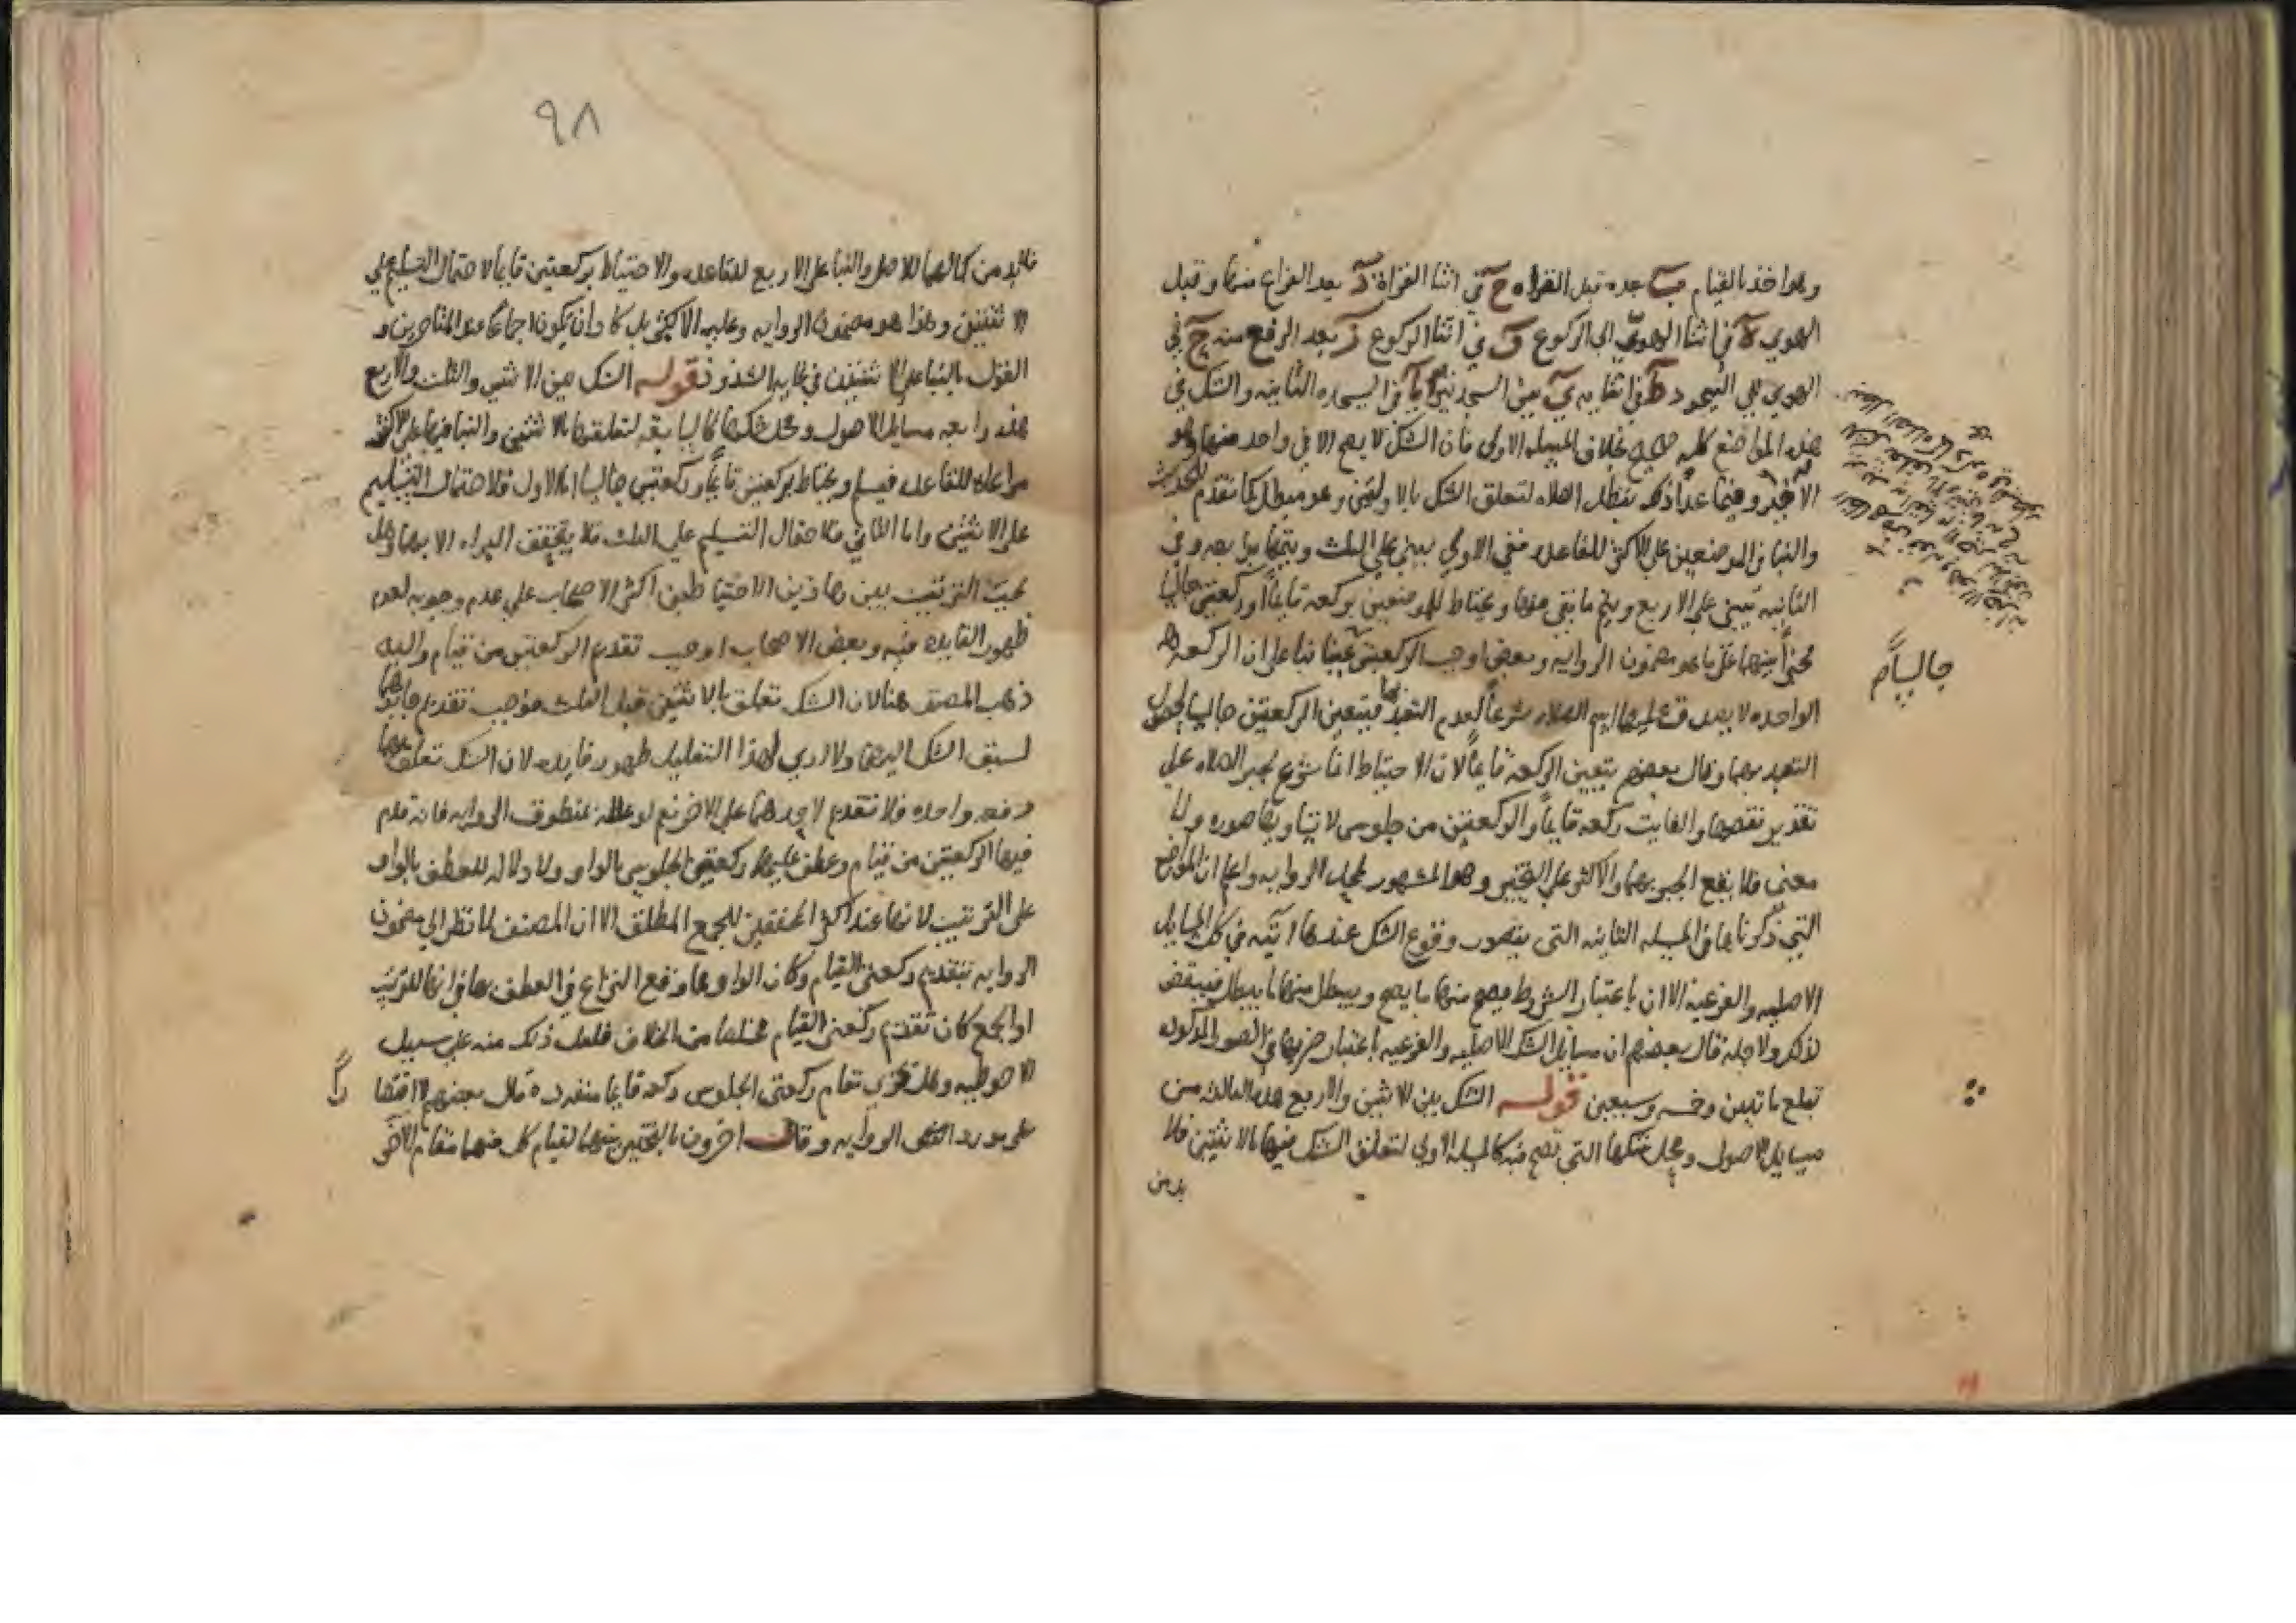 وهو اخذ بالقيام ب بعده قبل القراه ج في اثنا القراة د بعد الفراغ منها وقبل
الهوي ه في اثنا الهويّ الي الركوع و في اثنا الركوع ز بعد الرفع منه ح في
الهوي الي السجود ط في اثنايه ي بين السجدتين يا في السجده الثانيه والشك في
هذه المواضع كلها صحيح بخلاف المسيله الاولي فان الشك لا يصح الا في واحد منها وهو
الاخير وفيما عداً ذلك تبطل الصلاه لتعلق الشك بالاوليين وهو مبطل كما تقدم
والبنا في الموضعين علي الاكثر للقاعده ففي الاولي يبني علي الثلث ويتمها برابعه وفي
الثانيه يبني علي الاربع ويتم ما بقي منها ويحتاط للموضعين بركعه قايماً او ركعتين جالسا
مخيراً بينهما علي ما هو مضمون الروايه وبعض اوجب الركعتين عينا بنا علي ان الركعه
الواحده لا يصدق عليها اسم الصلاه شرعاً لعدم التعبد بها فيتعين الركعتين جالسا لحصول
التعبد بهما وقال بعضهم يتعين الركعه قايماً لان الاحتياط انما شرع لجبر الصلاه علي
تقدير نقصها والفايت ركعه قايماً والركعتين من جلوس لا يساويها صوره ولا
معني فلا يقع الجبر بهما والاكثر علي التخيير وهو المشهور لمحل الروايه واعلم ان المواضع
التي ذكرناها في المسيله الثانيه التي يتصور وقوع الشك عندها اتيه في كل المسايل
الاصليه والفرعيه الا ان باعتبار الشروط يصح منها ما يصح ويبطل منها ما يبطل
لذلك ولاجله قال بعضهم ان مسايل الشك الاصليه والفرعيه باعتبار ضربها في الصور المذكوره
تبلغ ماتين وخمسه وسبعين قوله الشك بين الاثنين والاربع هذه الثالثه من
مسايل الاصول ومحل شكها التي تصح فيه كالمسيله الاولي لتعلق الشك فيها بالاثنتين فلا
بد من
جالساً م
٩٨
فلابد من كمالهما للاصل والبنا علي الاربع للقاعده والاحتياط بركعتين قايما لاحتمال التسليم علي
الاثنتين وهذا هو مضمون الروايه وعليه الاكثر بل كاد ان يكون اجماعا من المتاخرين و
القول بالبنا علي الاثنتين في غايه الشذوذ قوله الشك بين الاثنين والثلث والاربع
هذه رابعه مسايل الاصول ومحل شكها كالسابقه لتعلقها بالاثنتين والبنا فيها علي الاكثر
مراعاه للقاعده فيسلم ويحتاط بركعتين قايماً وركعتين جالسا اما الاول فلاحتمال التسليم
علي الاثنتين واما الثاني فلاحتمال التسليم علي الثلث فلا يتحقق البراه الا بهما وهل
يجب الترتيب بين هاذين الاحتياطين اكثر الاصحاب علي عدم وجوبه لعدم
ظهور الفايده فيه وبعض الاصحاب اوجب تقديم الركعتين من قيام واليه
ذهب المصنف هنا لان الشك تعلق بالاثنتين قبل الثلث فوجب تقديم جابرهما
لسبق الشك اليهما ولا اري لهذا التعليل ظهور فايده لان الشك تعلق بهما
دفعه واحده فلا تقديم لاحدهما علي الاخر نعم لو علله بمنطوق الروايه فانه قدم
فيها الركعتين من قيام وعطف عليها ركعتين الجلوس بالواو ولا دلاله للعطف بالواو
علي الترتيب لانها عند اكثر المحققين للجمع المطلق الا ان المصنف لما نظر الي مضمون
الروايه بتقديم ركعتي القيام وكان الواو مما وقع النزاع في العطف بها في انها للترتيب
او الجمع كان تقديم ركعتي القيام مخلصا من الخلاف فلعل ذلك منه علي سبيل
الاحوطيه وهل تجزي تمام ركعتي الجلوس ركعه قايما منفرده قال بعضهم لا اقتصارا
علي مورد النص الروايه وقال اخرون بالتخيير بينهما لقيام كل منهما مقام الاخر